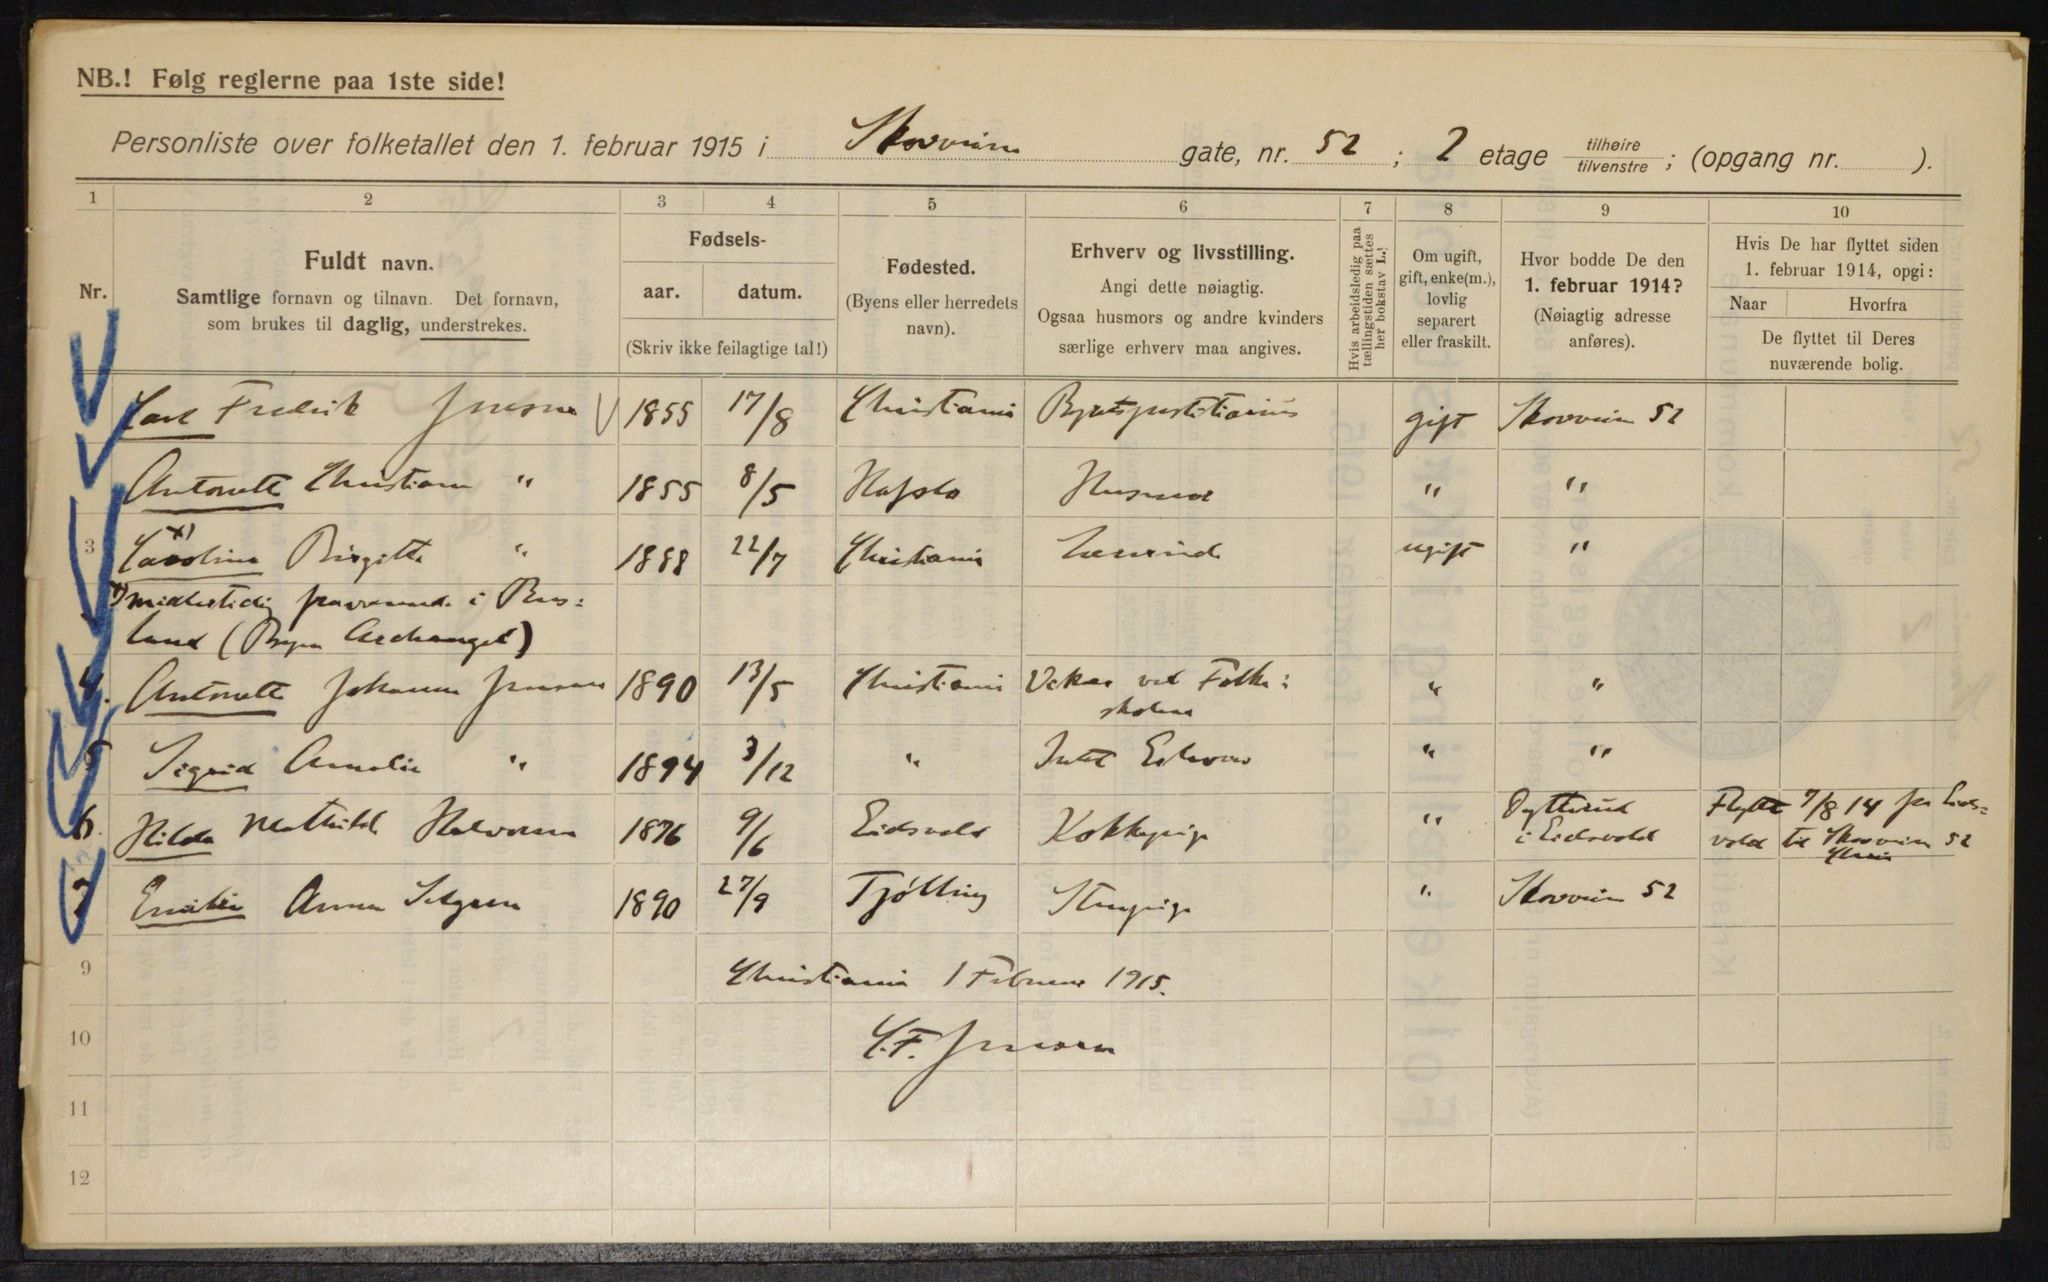 NB.! Følg reglerne paa 1ste side!
Personliste over folketallet den 1. februar 1915 i Skovveien gate, nr. 52; 2 etage tilhøire tilvenstre; (opgang nr. ).
1 2 3 4 5 6 7 8 9 10
Nr.
Fuldt navn.
Samtlige fornavn og tilnavn. Det fornavn,
som brukes til daglig, understrekes.
Fødsels-
aar. datum.
(Skriv ikke feilagtige tal!)
Fødested.
(Byens eller herredets
navn).
Erhverv og livsstilling.
Angi dette nøiagtig.
Ogsaa husmors og andre kvinders
særlige erhverv maa angives.
Hvis arbeidsledig paa
tællingstiden sættes
her bokstav L.!
Om ugift,
gift, enke(m.),
lovlig
separert
eller fraskilt.
Hvor bodde De den
1. februar 1914?
(Nøiagtig adresse
anføres).
Hvis De har flyttet siden
1. februar 1914, opgi:
Naar Hvorfra
De flyttet til Deres
nuværende bolig.
Carl Fredrik Jensen 1855 17/8 Christiania Byretsjustitiarius gift Skovveien 52
Antonette Christiane " 1855 8/5 Hafslo Husmor " "
3 Caroline x) Birgitte " 1888 22/7 Christiania Lærerinde ugift "
x) midlertidig fraværende i Rus:
land (Byen Archangel)
4. Antonette Johanne Jensen 1890 13/5 Christiania Vikar ved Folke: " "
skolen
5 Sigrid Amalie " 1894 3/12 " Intet Erhverv " "
6. Hilda Mathilde Halvorsen 1876 9/6 Eidsvold Kokkepige " Dytterud Flyttet 7/8 14 fra Eids=
i Eidsvold vold til Skovveien 52
Chria
7 Emilie Anna 1890 27/9 Tjølling Stuepige " Skovveien 52
9 Christiania 1 Februar 1915.
10 C. F. Jensen
11
12